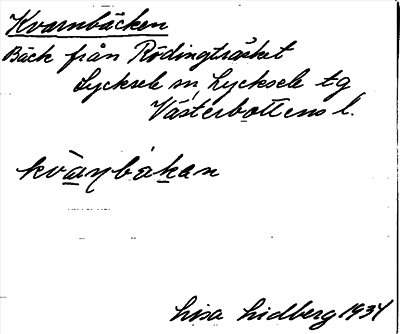 Kvarnbäcken
Bäck från Rödingträsket
Lycksele sn, Lycksele tg
Västerbottens l.
kvàɳbakan
Lisa Lidberg 1934